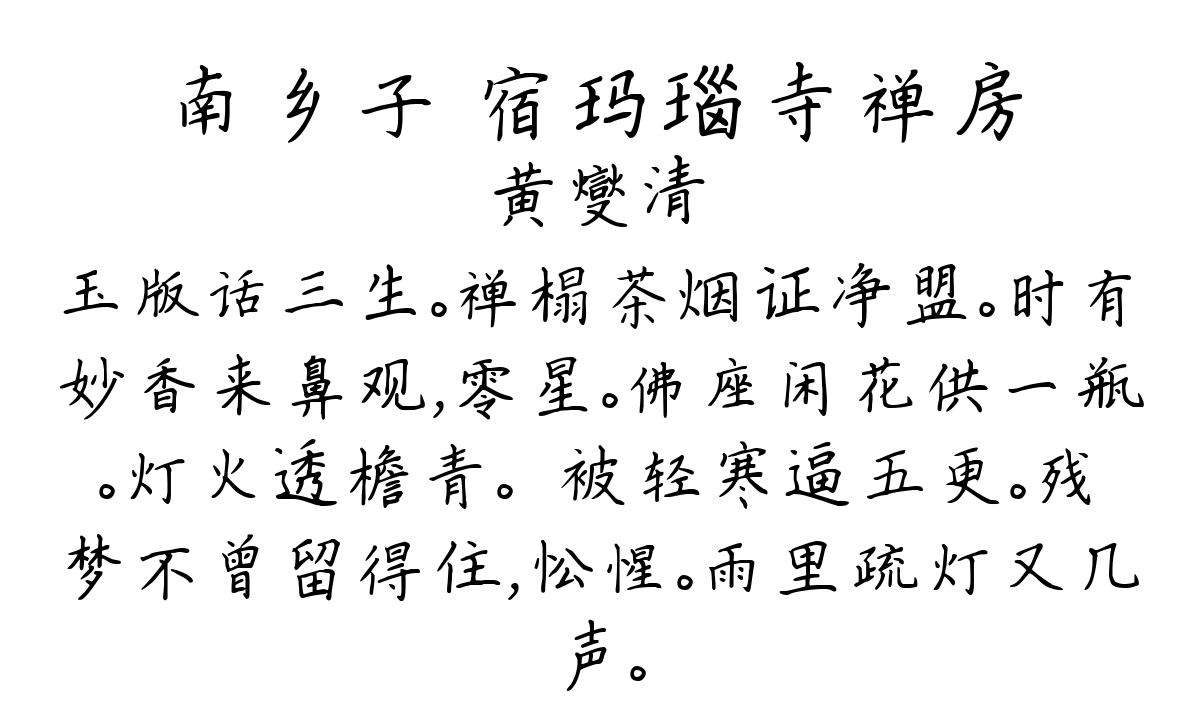 南乡子 宿玛瑙寺禅房
黄燮清
玉版话三生。禅榻茶烟证净盟。时有
妙香来鼻观,零星。佛座闲花供一瓶
。灯火透檐青。 被轻寒逼五更。残
梦不曾留得住,忪惺。雨里疏灯又几
声。